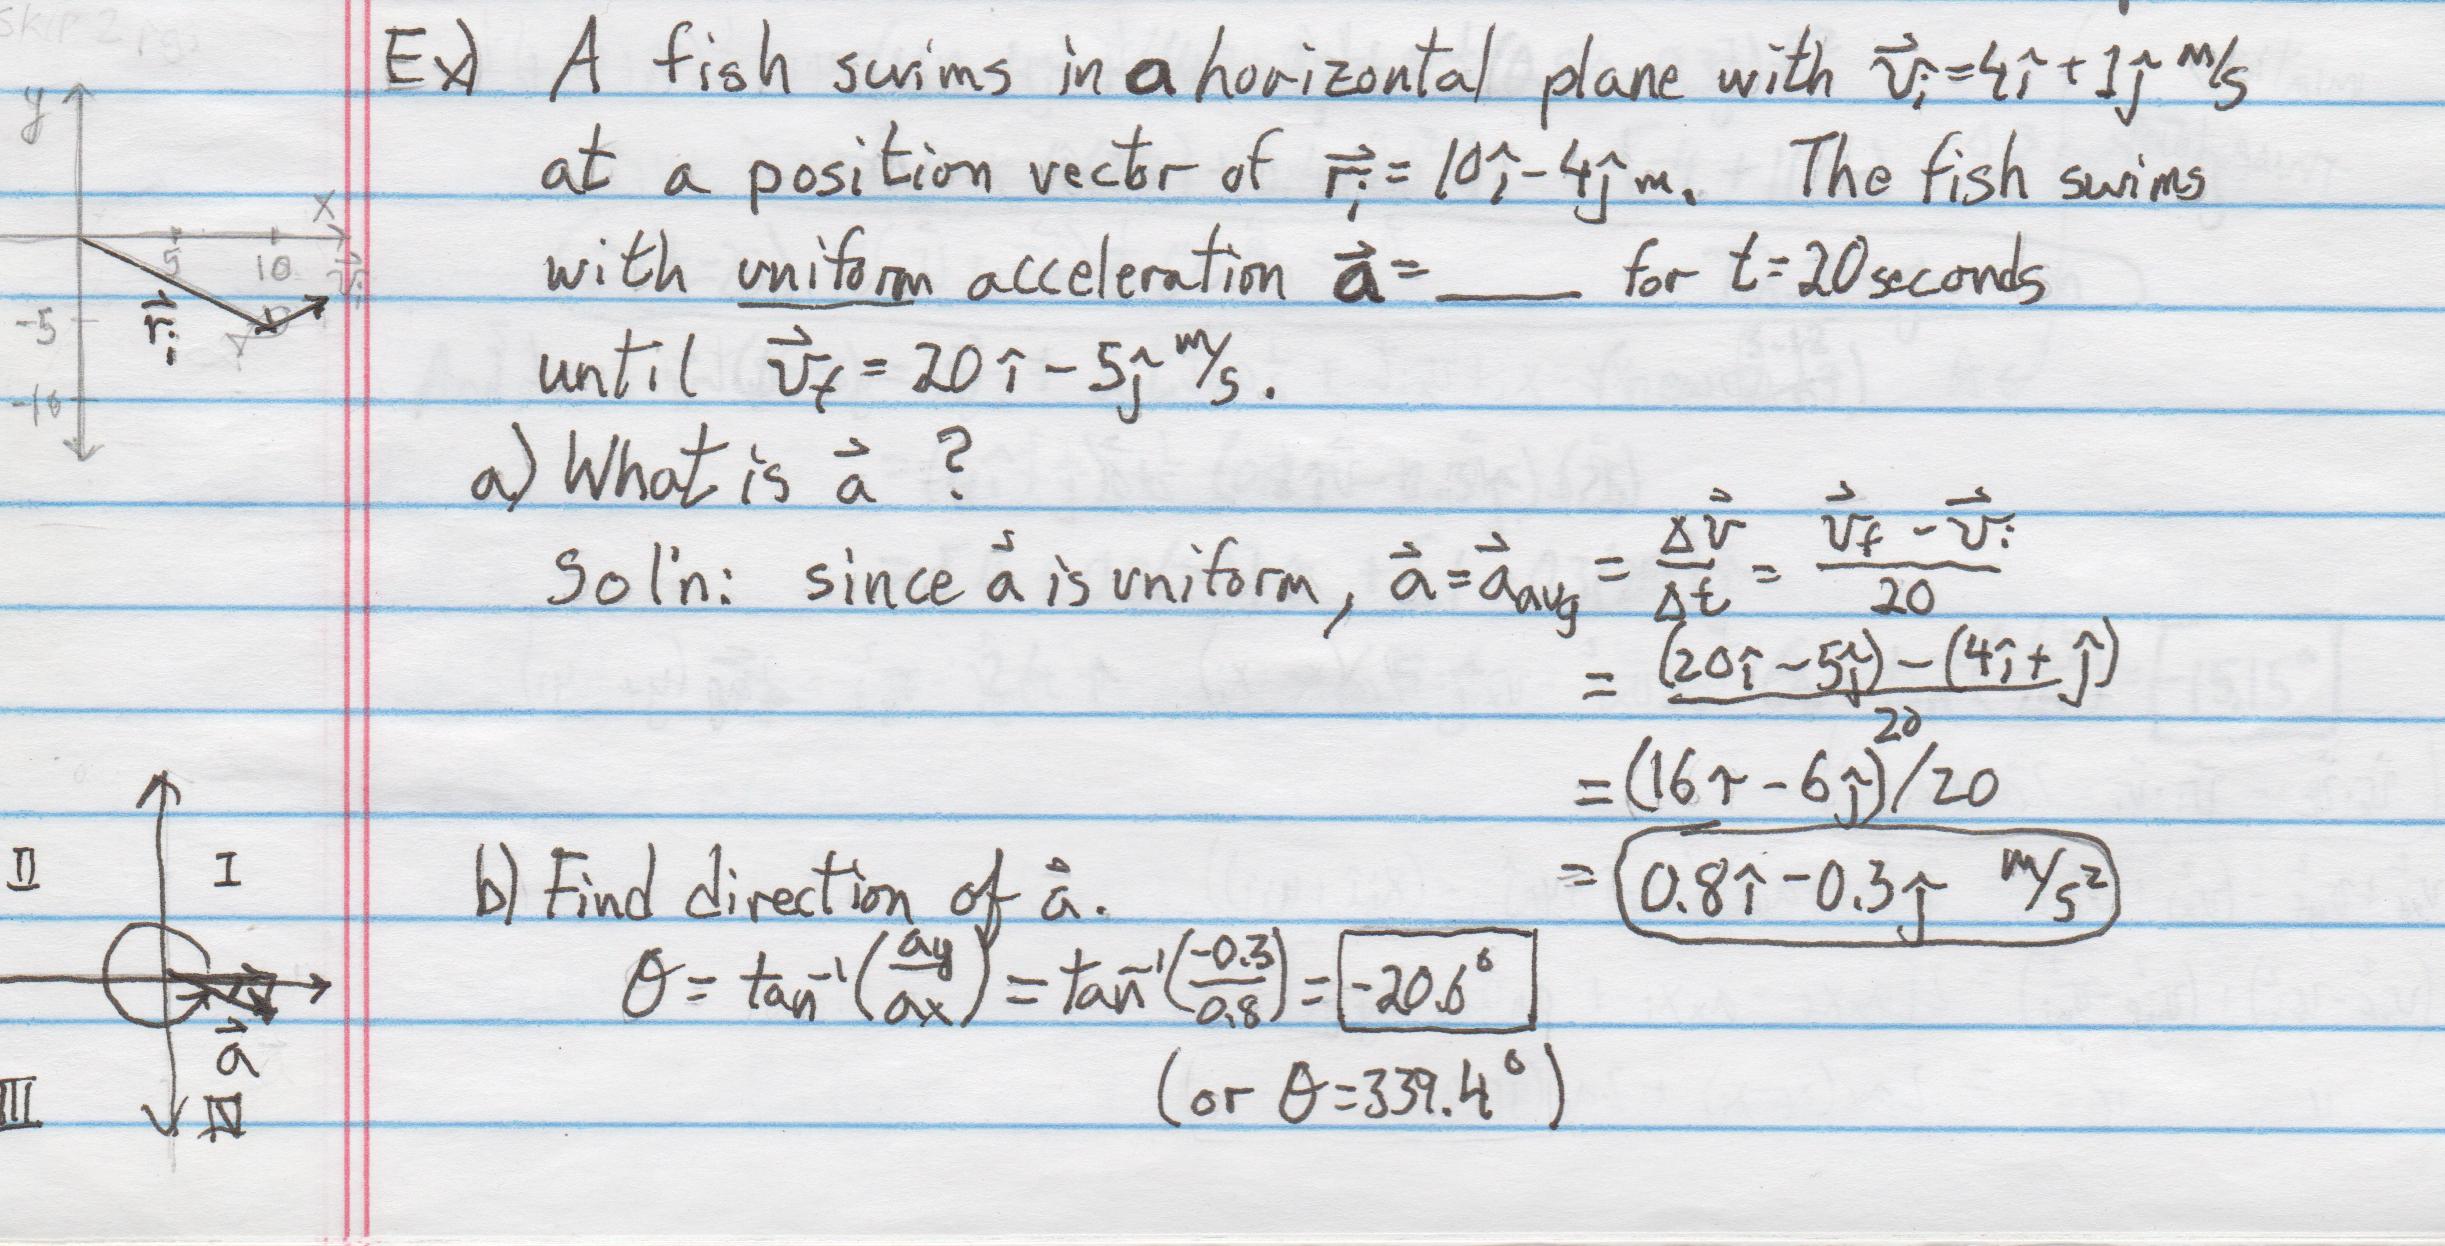 skip 2 pgs
Ex) A fish swims in a horizontal plane with v⃗ᵢ=4î+1ĵ m/s
at a position vector of r⃗ᵢ=10î-4ĵ m. The fish swims
with uniform acceleration a⃗=____ for t=20 seconds
until v⃗f=20î-5ĵ m/s.
y
x
5 10
v⃗ᵢ
-5
r⃗ᵢ
-10
a) What is a⃗?
Sol'n: since a⃗ is uniform, a⃗=a⃗avg = Δv⃗/Δt = (v⃗f - v⃗ᵢ)/20
= ((20î-5ĵ)-(4î+ĵ))/20
=(16î-6ĵ)/20
= 0.8î-0.3ĵ m/s²
b) Find direction of a⃗.
θ= tan⁻¹(ay/ax) = tan⁻¹(-0.3/0.8) = -20.6°
(or θ=339.4°)
II I
a⃗
III IV